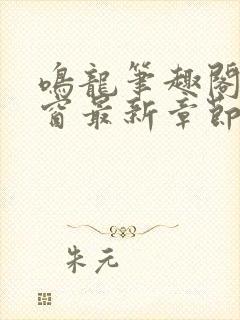 鳴龍筆趣閣
窗最新章節
朱元